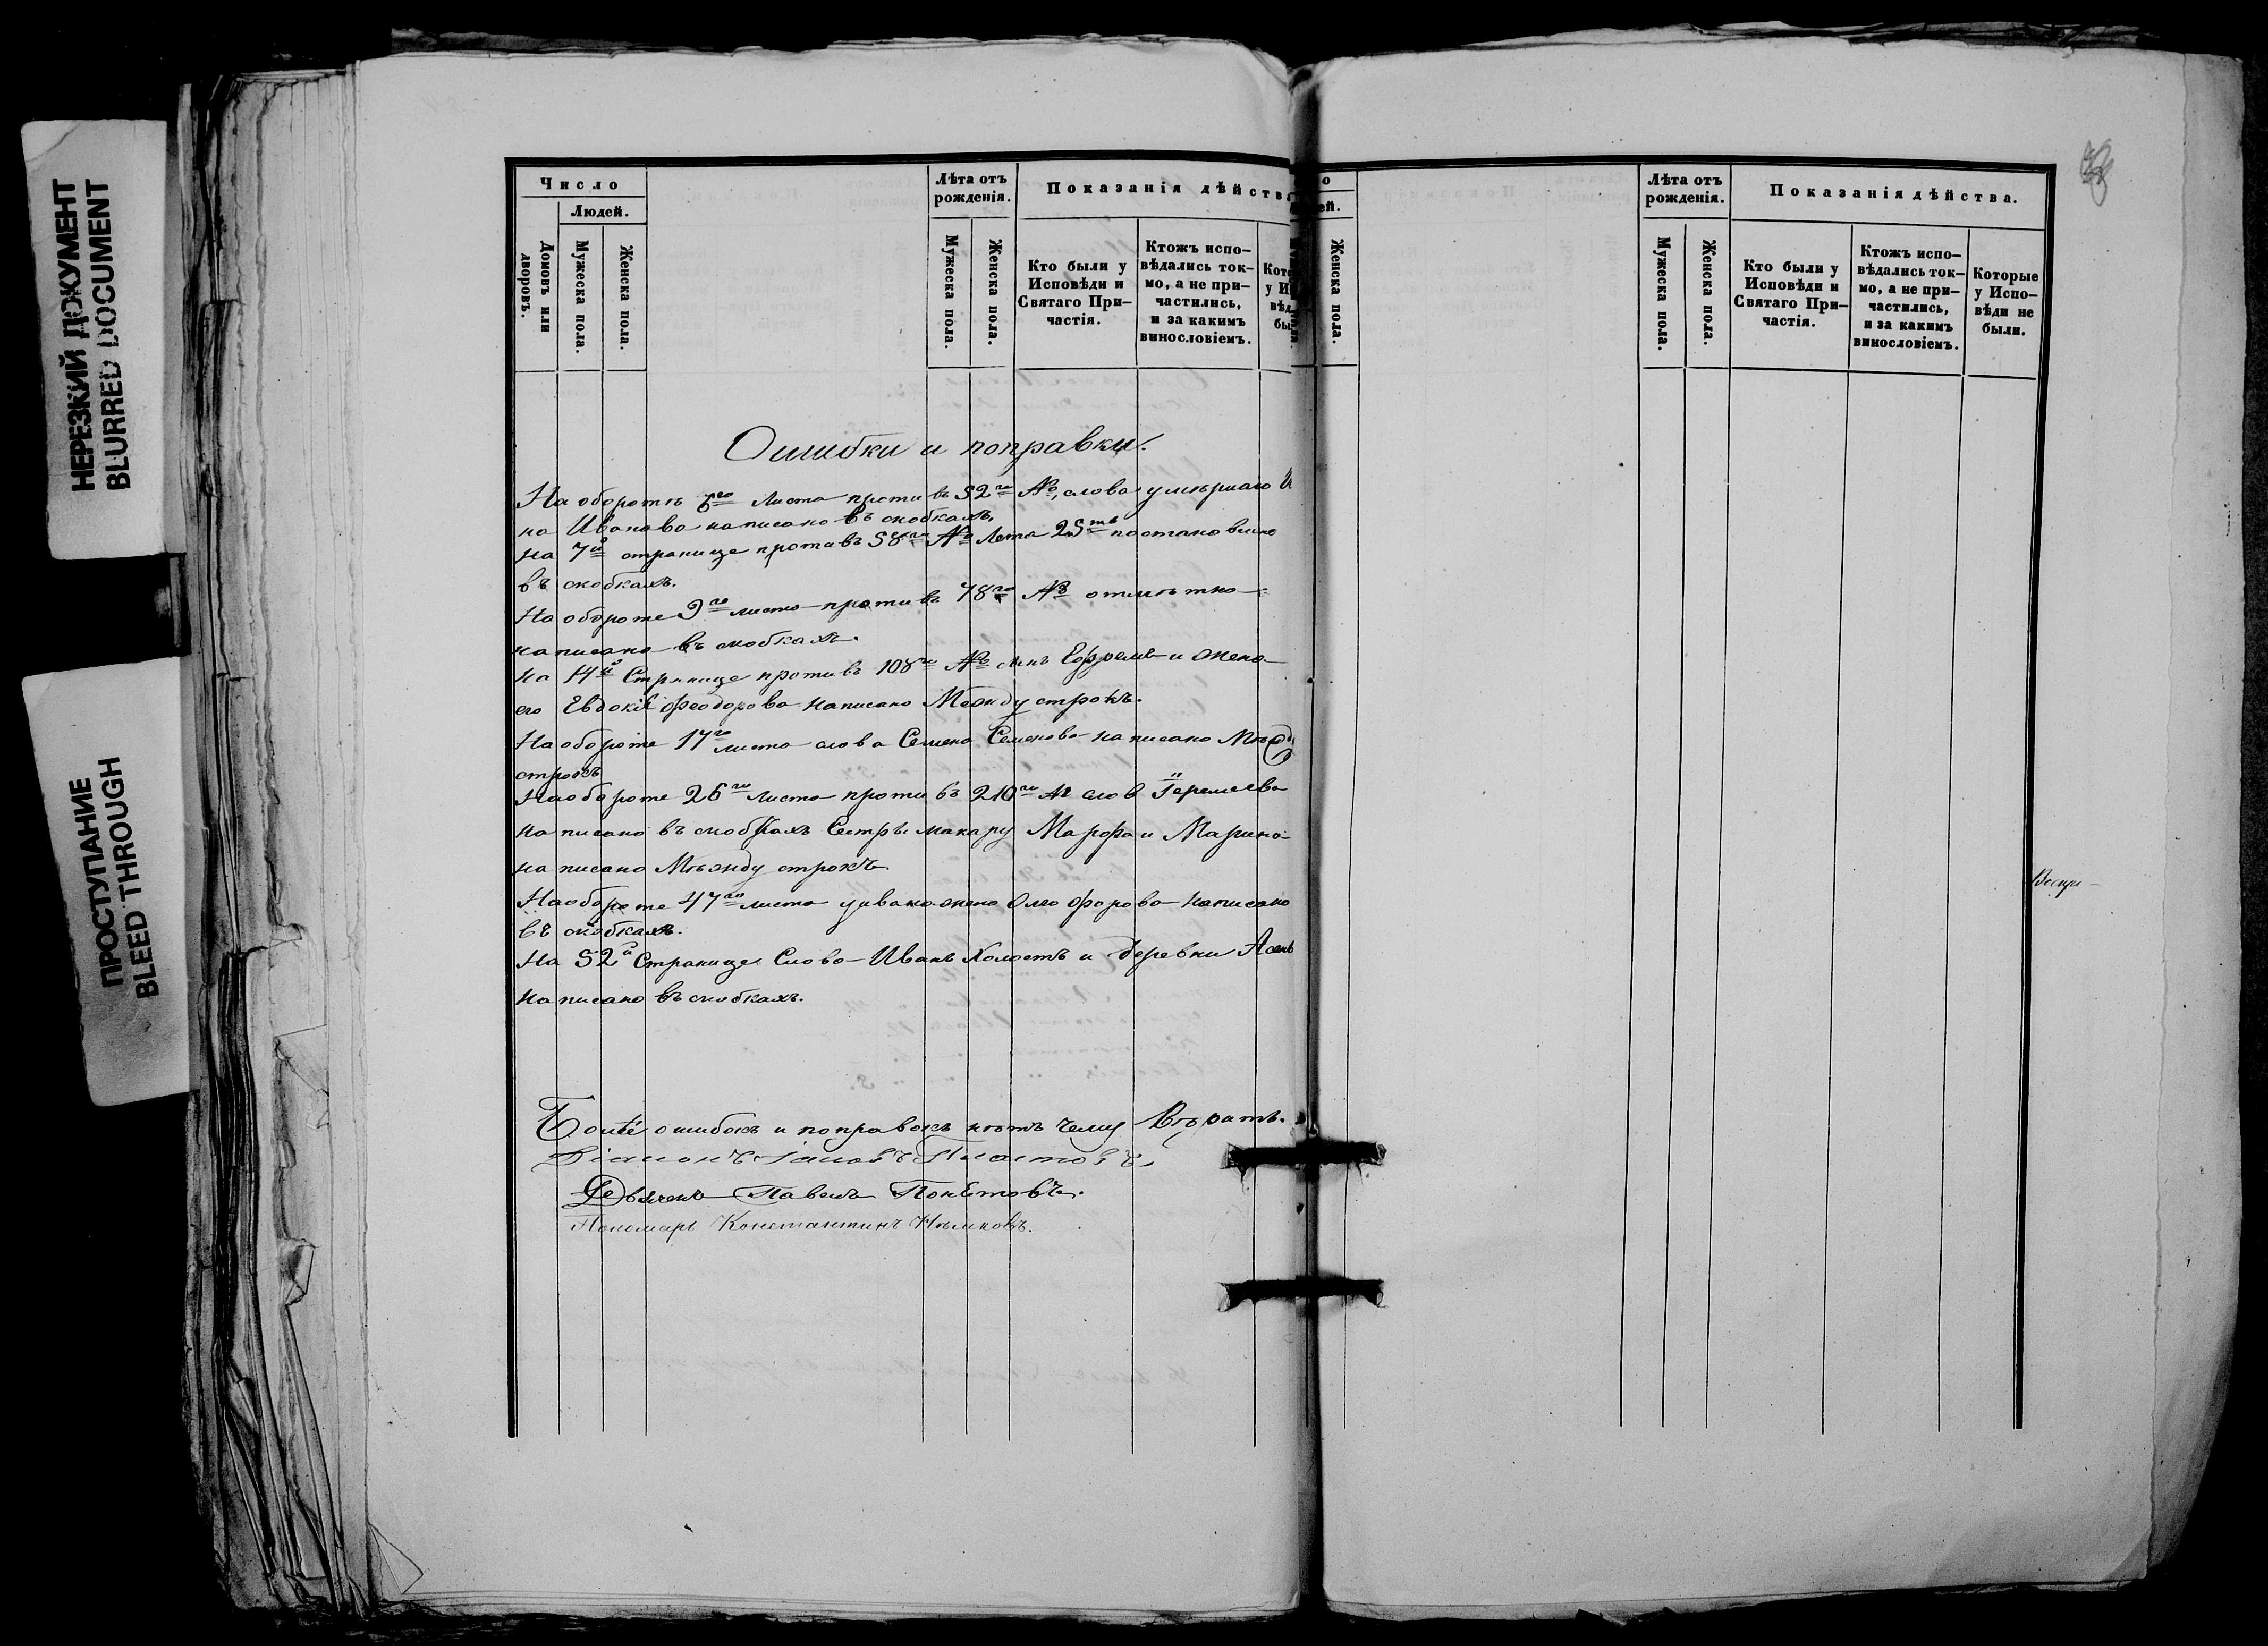 НЕРЕЗКИЙ ДОКУМЕНТ
BLURRED DOCUMENT
ПРОСТУПАНИЕ
BLEED THROUGH
Число
Людей.
Домовъ или дворовъ.
Мужеска пола.
Женска пола.
Лѣта отъ рожденія.
Мужеска пола.
Женска пола.
Показанія дѣйства
Кто были у Исповѣди и Святаго При-частія.
Ктожъ испо-вѣдались ток-мо, а не при-частились, и за какимъ винословіемъ.
Ошибки и поправки.
На оборотѣ 6го Листа противъ 52го №, слова умѣршаго
на Иванова написано въ скобкахъ,
на 7й странице противъ 58го № Лета 25ть постановлено
въ скобкахъ.
На обороте 9го листа противъ 78го № отмѣтка
написано въ скобкахъ.
на 14й Странице противъ 108го № сынъ Ефремъ и жена
его Евдокія Феодорова написано Между строкъ.
На обороте 17го листа слова Семена Семенова написано
строкъ
На обороте 26го Листа противъ 210го № слов Іеремеева
написано въ скобкахъ Сестры макару Марфа и Марина
написано Мѣжду строкъ.
На обороте 47го листа жена написано
въ скобкахъ.
На 52й Странице Слово Иванъ Холостъ и деревни
написано въ скобкахъ.
Болѣе ошибокъ и поправокъ нѣтъ
Діаконъ
Павелъ
Пономарь Константинъ
Женска пола.
Лѣта отъ рожденія.
Мужеска пола.
Женска пола.
Показанія дѣйства.
Кто были у Исповѣди и Святаго При-частія.
Ктожъ испо-вѣдались ток-мо, а не при-частились, и за какимъ винословіемъ.
Которые у Испо-вѣди не были.